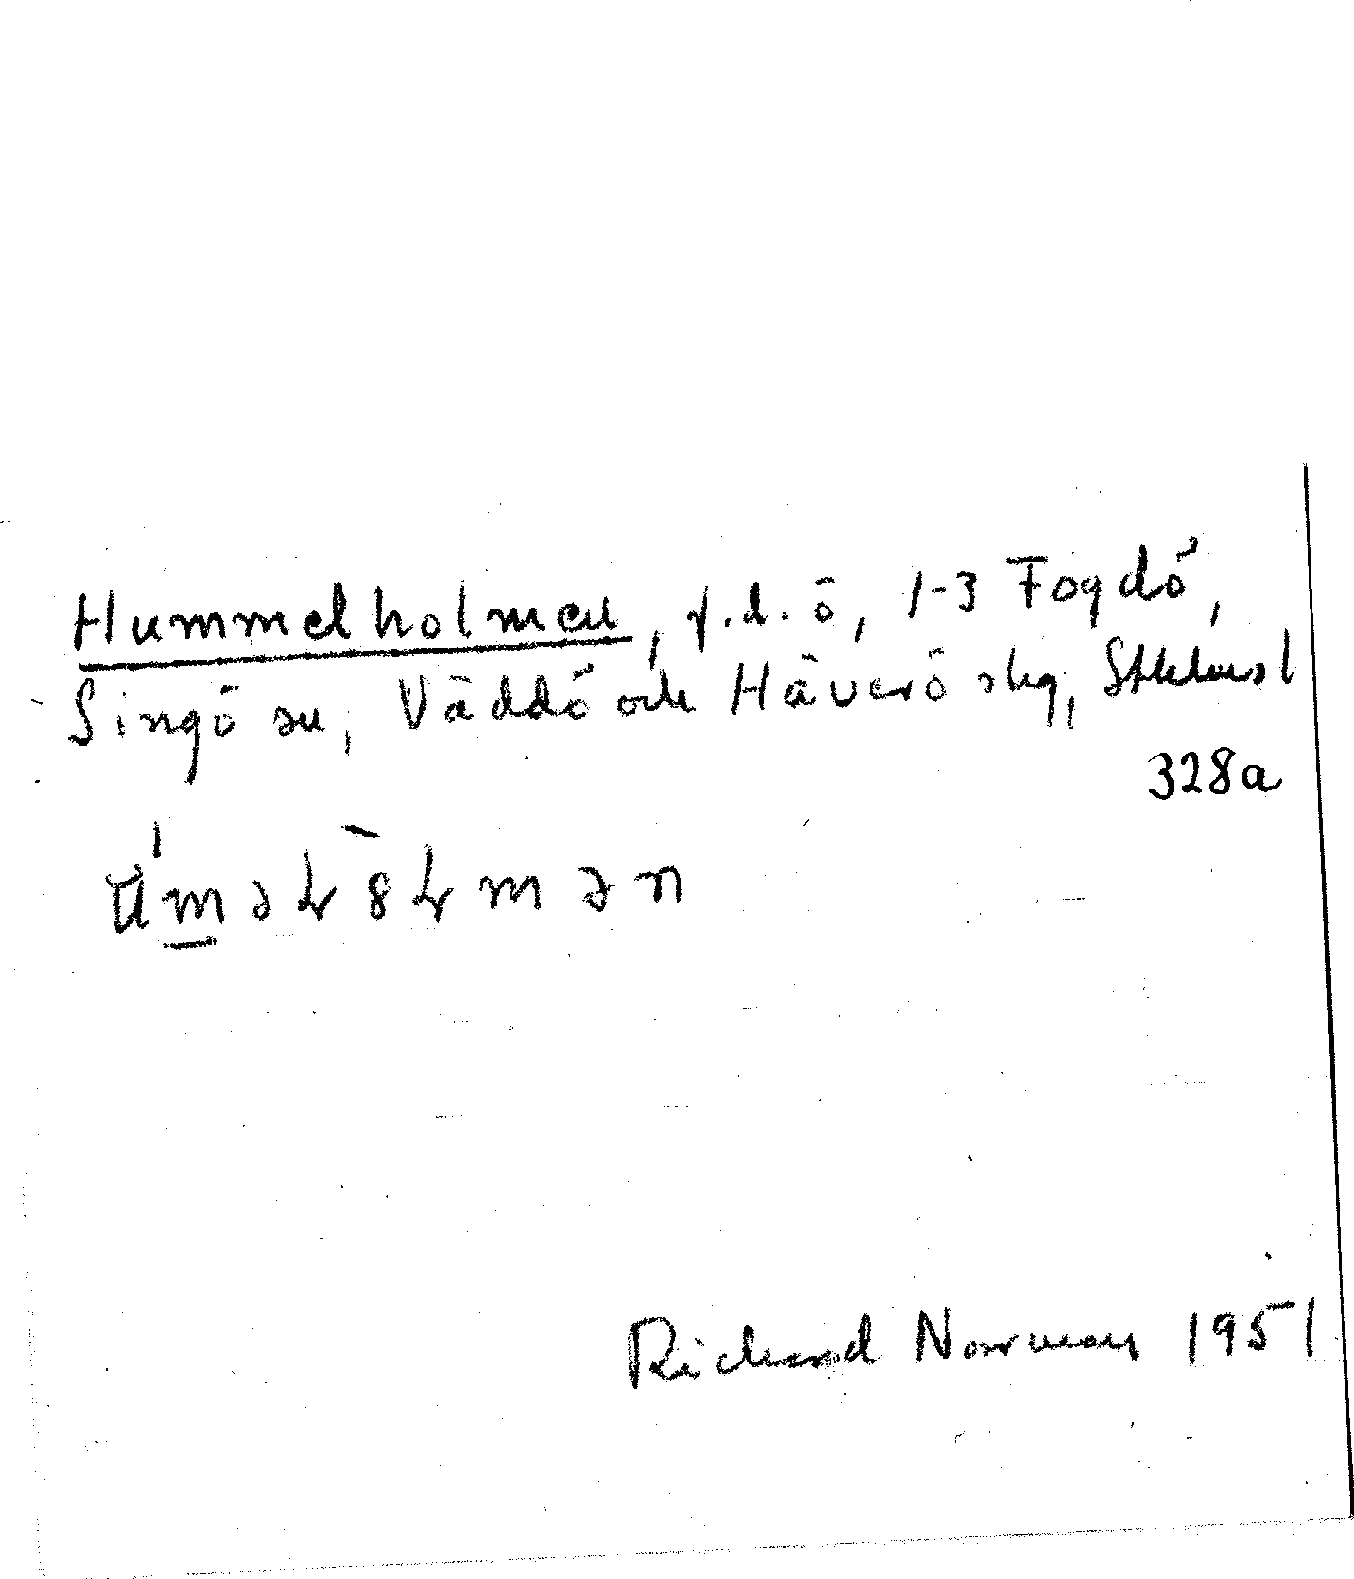 Hummelholmen, f.d. ö, 1-3 Fogdö,
Singö sn, Väddö och Häverö skg, Sthlms l
328a
Richard Norrman 1951